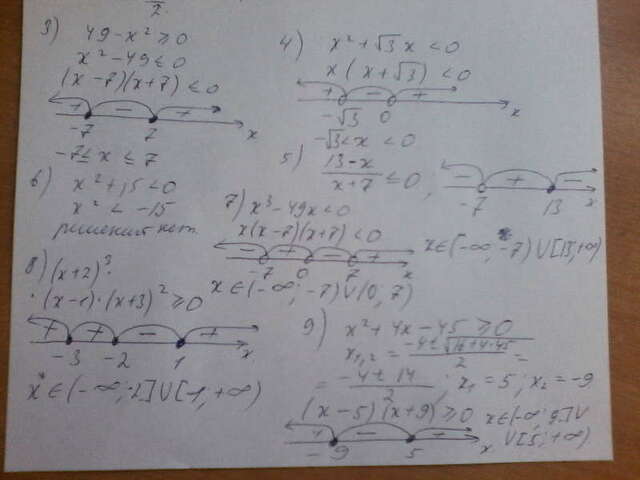 2
3) 49 - x² ≥ 0
x² - 49 ≤ 0
(x - 7)(x + 7) ≤ 0
+ - +
-7 7 x
-7 ≤ x ≤ 7
4) x² + √3 x < 0
x(x + √3) < 0
+ - +
-√3 0 x
-√3 < x < 0
5) (13 - x)/(x + 7) ≤ 0,
- + -
-7 13 x
x ∈ (-∞; -7) ∪ [13; +∞)
6) x² + 15 < 0
x² < -15
решений нет.
7) x³ - 49x < 0
x(x - 7)(x + 7) < 0
- + - +
-7 0 7 x
x ∈ (-∞; -7) ∪ (0, 7)
8) (x + 2)³·
·(x - 1)·(x + 3)² ≥ 0
+ + - +
-3 -2 1 x
x ∈ (-∞; -2] ∪ [-1, +∞)
9) x² + 4x - 45 ≥ 0
x₁,₂ = (-4 ± √(16 + 4·45))/2 =
= (-4 ± 14)/2; x₁ = 5; x₂ = -9
(x - 5)(x + 9) ≥ 0 x ∈ (-∞; 9] ∪
∪ [5; +∞)
+ - +
-9 5 x